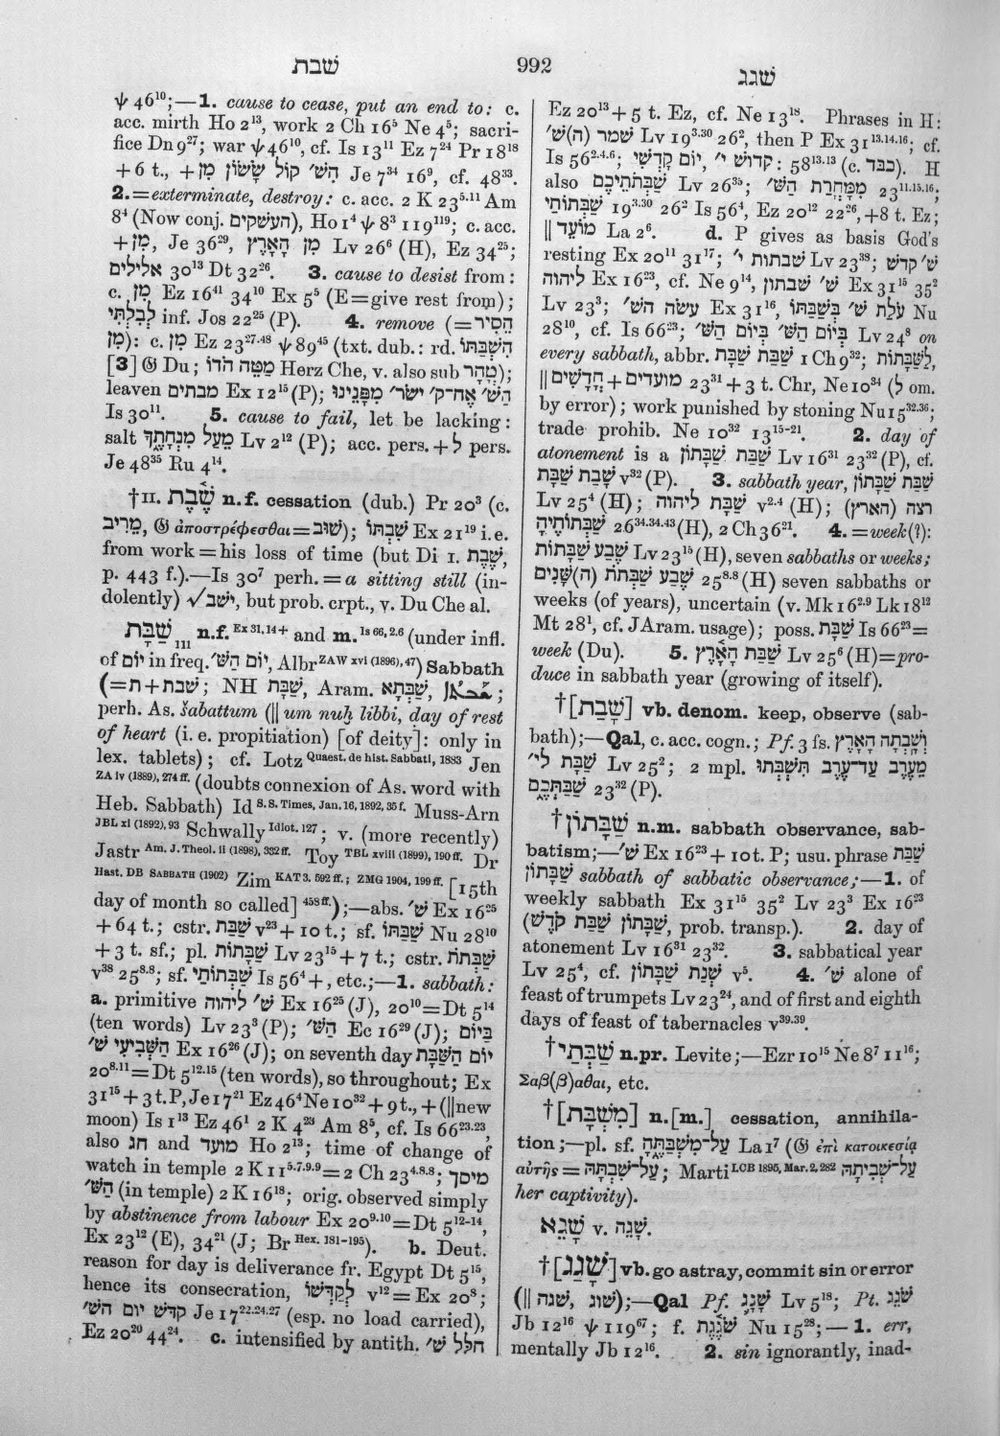 שבת
992
שגג
ψ 46¹⁰;—1. cause to cease, put an end to: c.
acc. mirth Ho 2¹³, work 2 Ch 16⁵ Ne 4⁵; sacri-
fice Dn 9²⁷; war ψ 46¹⁰, cf. Is 13¹¹ Ez 7²⁴ Pr 18¹⁸
+ 6 t., + הִשׁ׳ קוֹל שָׂשׂוֹן מִן Je 7³⁴ 16⁹, cf. 48³³.
2. = exterminate, destroy: c. acc. 2 K 23⁵·¹¹ Am
8⁴ (Now conj. העשׁקים), Ho 1⁴ ψ 8³ 119¹¹⁹; c. acc.
+ מִן, Je 36²⁹, מִן הָאָרֶץ Lv 26⁶ (H), Ez 34²⁵;
אלילים 30¹³ Dt 32²⁶. 3. cause to desist from:
c. מִן Ez 16⁴¹ 34¹⁰ Ex 5⁵ (E = give rest from);
לְבִלְתִּי inf. Jos 22²⁵ (P). 4. remove (= הֵסִיר
מִן): c. מִן Ez 23²⁷·⁴⁸ ψ 89⁴⁵ (txt. dub.: rd. הִשְׁבַּתּוֹ
[3] 𝔊 Du; מַטֵּה הֹדוֹ Herz Che, v. also sub טְהָר);
leaven מבתים Ex 12¹⁵ (P); הַשׁ׳ אֶת־ק׳ ישׂר׳ מִפָּנֵינוּ
Is 30¹¹. 5. cause to fail, let be lacking:
salt מֵעַל מִנְחָתֶךָ Lv 2¹² (P); acc. pers. + ל pers.
Je 48³⁵ Ru 4¹⁴.
†II. שֶׁ֫בֶת n.f. cessation (dub.) Pr 20³ (c.
מֵרִיב, 𝔊 ἀποστρέφεσθαι = שׁוּב); שִׁבְתּוֹ Ex 21¹⁹ i.e.
from work = his loss of time (but Di I. שֶׁבֶת,
p. 443 f.).—Is 30⁷ perh. = a sitting still (in-
dolently) √ישׁב, but prob. crpt., v. Du Che al.
שַׁבָּת III n.f. Ex 31, 14+ and m. Is 66, 2.6 (under infl.
of יום in freq. יוֹם הַשּׁ׳, Albr ZAW xvi (1896), 47) Sabbath
(= שׁבת + ת; NH שַׁבָּת, Aram. שַׁבְּתָא, ;
perh. As. šabattum (|| um nuḫ libbi, day of rest
of heart (i. e. propitiation) [of deity]: only in
lex. tablets); cf. Lotz Quaest. de hist. Sabbati, 1883 Jen
ZA iv (1889), 274 ff. (doubts connexion of As. word with
Heb. Sabbath) Id S. S. Times, Jan. 16, 1892, 35 f. Muss-Arn
JBL xi (1892), 93 Schwally Idiot. 127; v. (more recently)
Jastr Am. J. Theol. ii (1898), 332 ff. Toy TBL xviii (1899), 190 ff. Dr
Hast. DB SABBATH (1902) Zim KAT 3. 592 ff.; ZMG 1904, 199 ff. [15th
day of month so called] 458 ff.);—abs. שׁ׳ Ex 16²⁵
+ 64 t.; cstr. שַׁבַּת v²³ + 10 t.; sf. שַׁבַּתּוֹ Nu 28¹⁰
+ 3 t. sf.; pl. שַׁבָּתוֹת Lv 23¹⁵ + 7 t.; cstr. שַׁבְּתֹת
v³⁸ 25⁸·⁸; sf. שַׁבְּתוֹתַי Is 56⁴ +, etc.;—1. sabbath:
a. primitive שׁ׳ ליהוה Ex 16²⁵ (J), 20¹⁰ = Dt 5¹⁴
(ten words) Lv 23³ (P); הַשּׁ׳ Ec 16²⁹ (J); בַּיּוֹם
הַשְּׁבִיעִי שׁ׳ Ex 16²⁶ (J); on seventh day יוֹם הַשַּׁבָּת
20⁸·¹¹ = Dt 5¹²·¹⁵ (ten words), so throughout; Ex
31¹⁵ + 3 t. P, Je 17²¹ Ez 46⁴ Ne 10³² + 9 t., + (||new
moon) Is 1¹³ Ez 46¹ 2 K 4²³ Am 8⁵, cf. Is 66²³·²³,
also חג and מועד Ho 2¹³; time of change of
watch in temple 2 K 11⁵·⁷·⁹·⁹ = 2 Ch 23⁴·⁸·⁸; מיסך
הַשּׁ׳ (in temple) 2 K 16¹⁸; orig. observed simply
by abstinence from labour Ex 20⁹·¹⁰ = Dt 5¹²⁻¹⁴,
Ex 23¹² (E), 34²¹ (J; Br Hex. 181–195). b. Deut.
reason for day is deliverance fr. Egypt Dt 5¹⁵,
hence its consecration, לְקַדְּשׁוֹ v¹² = Ex 20⁸;
קדשׁ יום השׁ׳ Je 17²²·²⁴·²⁷ (esp. no load carried),
Ez 20²⁰ 44²⁴. c. intensified by antith. חלל שׁ׳
Ez 20¹³ + 5 t. Ez, cf. Ne 13¹⁸. Phrases in H:
שׁמר (ה)שׁ׳ Lv 19³·³⁰ 26², then P Ex 31¹³·¹⁴·¹⁶; cf.
Is 56²·⁴·⁶; קדושׁ י׳, יום קָדְשִׁי: 58¹³·¹³ (c. כבד). H
also שַׁבְּתֹתֵיכֶם Lv 26³⁵; מִמָּחֳרַת הַשּׁ׳ 23¹¹·¹⁵·¹⁶;
שַׁבְּתוֹתַי 19³·³⁰ 26² Is 56⁴, Ez 20¹² 22²⁶, + 8 t. Ez;
|| מוֹעֵד La 2⁶. d. P gives as basis God's
resting Ex 20¹¹ 31¹⁷; שׁבתות י׳ Lv 23³⁸; שׁ׳ קדשׁ
ליהוה Ex 16²³, cf. Ne 9¹⁴, שׁ׳ שׁבתון Ex 31¹⁵ 35²
Lv 23³; עשׂה השׁ׳ Ex 31¹⁶, עֹלַת שׁ׳ בְּשַׁבַּתּוֹ Nu
28¹⁰, cf. Is 66²³; בְּיוֹם הַשּׁ׳ בְּיוֹם הַשּׁ׳ Lv 24⁸ on
every sabbath, abbr. שַׁבַּת שַׁבָּת 1 Ch 9³²; לַשַּׁבָּתוֹת,
|| מועדים + חֳדָשִׁים 23³¹ + 3 t. Chr, Ne 10³⁴ (ל om.
by error); work punished by stoning Nu 15³²·³⁶;
trade prohib. Ne 10³² 13¹⁵⁻²¹. 2. day of
atonement is a שַׁבַּת שַׁבָּתוֹן Lv 16³¹ 23³² (P), cf.
שָׁבַת שַׁבָּת v³² (P). 3. sabbath year, שַׁבַּת שַׁבָּתוֹן
Lv 25⁴ (H); שַׁבָּת ליהוה v²·⁴ (H); רצה (הארץ)
שַׁבְּתוֹתֶיהָ 26³⁴·³⁴·⁴³ (H), 2 Ch 36²¹. 4. = week (?):
שֶׁבַע שַׁבָּתוֹת Lv 23¹⁵ (H), seven sabbaths or weeks;
שֶׁבַע שַׁבְּתֹת (ה)שָּׁנִים 25⁸·⁸ (H) seven sabbaths or
weeks (of years), uncertain (v. Mk 16²·⁹ Lk 18¹²
Mt 28¹, cf. JAram. usage); poss. שַׁבָּת Is 66²³ =
week (Du). 5. שַׁבַּת הָאָ֫רֶץ Lv 25⁶ (H) = pro-
duce in sabbath year (growing of itself).
†[שָׁבַת] vb. denom. keep, observe (sab-
bath);—Qal, c. acc. cogn.; Pf. 3 fs. וְשָׁבְתָה הָאָרֶץ
שַׁבָּת לי׳ Lv 25²; 2 mpl. מֵעֶרֶב עַד־עֶרֶב תִּשְׁבְּתוּ
שַׁבַּתְּכֶם 23³² (P).
†שַׁבָּתוֹן n.m. sabbath observance, sab-
batism;—שׁ׳ Ex 16²³ + 10 t. P; usu. phrase שַׁבַּת
שַׁבָּתוֹן sabbath of sabbatic observance;—1. of
weekly sabbath Ex 31¹⁵ 35² Lv 23³ Ex 16²³
(שַׁבָּתוֹן שַׁבַּת קֹדֶשׁ, prob. transp.). 2. day of
atonement Lv 16³¹ 23³². 3. sabbatical year
Lv 25⁴, cf. שְׁנַת שַׁבָּתוֹן v⁵. 4. שׁ׳ alone of
feast of trumpets Lv 23²⁴, and of first and eighth
days of feast of tabernacles v³⁹·³⁹.
†שַׁבְּתַי n.pr. Levite;—Ezr 10¹⁵ Ne 8⁷ 11¹⁶;
Σαβ(β)αθαι, etc.
†[מִשְׁבָּת] n.[m.] cessation, annihila-
tion;—pl. sf. עַל־מִשְׁבַּתֶּהָ La 1⁷ (𝔊 ἐπὶ κατοικεσίᾳ
αὐτῆς = עַל־שִׁבְתָּהּ; Marti LCB 1895, Mar. 2, 282 עַל־שְׁבִיתָהּ
her captivity).
שָׁגֵא v. שָׁגָה.
†[שָׁגַג] vb. go astray, commit sin or error
(|| שׁגה, שׁוג);—Qal Pf. שָׁגָג Lv 5¹⁸; Pt. שֹׁגֵג
Jb 12¹⁶ ψ 119⁶⁷; f. שֹׁגֶ֫גֶת Nu 15²⁸;—1. err,
mentally Jb 12¹⁶. 2. sin ignorantly, inad-